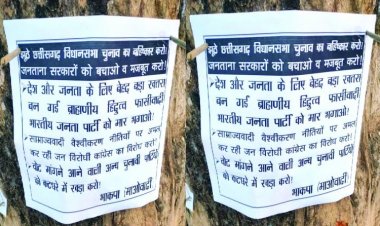 झूठे छत्तीसगढ़ विधानसभा चुनाव का बहिष्कार करो!
जनताना सरकारों को बचाओ व मजबूत करो!
देश और जनता के लिए बेहद बड़ा खतरा
बन गई ब्राहणीय हिंदुत्व फासीवादी
भारतीय जनता पार्टी को मार भगाओ!
साम्राज्यवादी वैश्वीकरण नीतियों पर अमल
कर रही जन विरोधी कांग्रेस का विरोध करो!
वोट मांगने आने वाली अन्य चुनावी पार्टियों
को कटघरे में खड़ा करो!
भाकपा (माओवादी)
झूठे छत्तीसगढ़ विधानसभा चुनाव का बहिष्कार करो!
जनताना सरकारों को बचाओ व मजबूत करो!
देश और जनता के लिए बेहद बड़ा खतरा
बन गई ब्राहणीय हिंदुत्व फासीवादी
भारतीय जनता पार्टी को मार भगाओ!
साम्राज्यवादी वैश्वीकरण नीतियों पर अमल
कर रही जन विरोधी कांग्रेस का विरोध करो!
वोट मांगने आने वाली अन्य चुनावी पार्टियों
को कटघरे में खड़ा करो!
भाकपा (माओवादी)